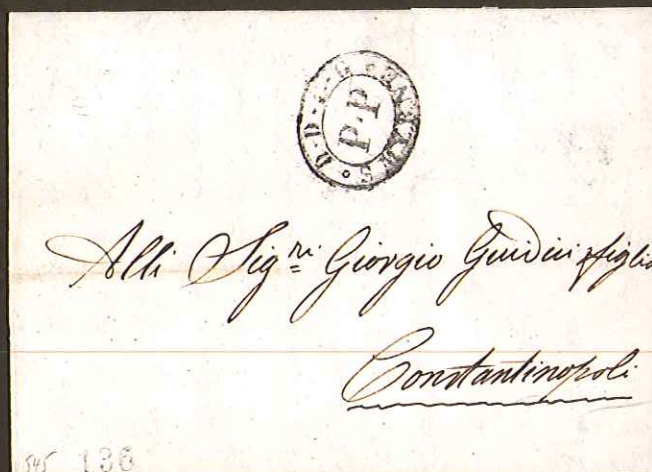 SMYRNE
P.P
Alli Sig.ri Giorgio Giudici figlio
Constantinopoli
545 136